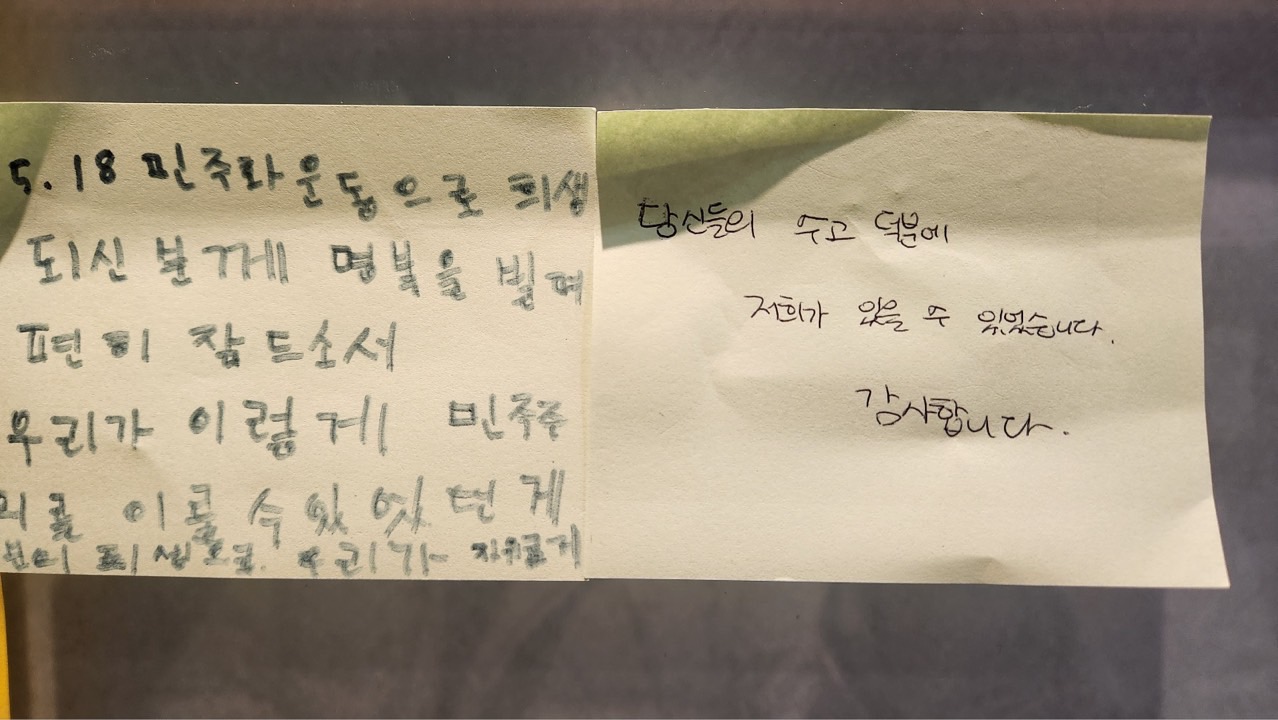 5.18 민주화운동으로 희생
되신 분께 명복을 빌며
편히 잠드소서
우리가 이렇게 민주주
의를 이룰 수 있었던 게
희생으로 우리가 자유롭게
당신들의 수고 덕분에
저희가 있을 수 있었습니다.
감사합니다.